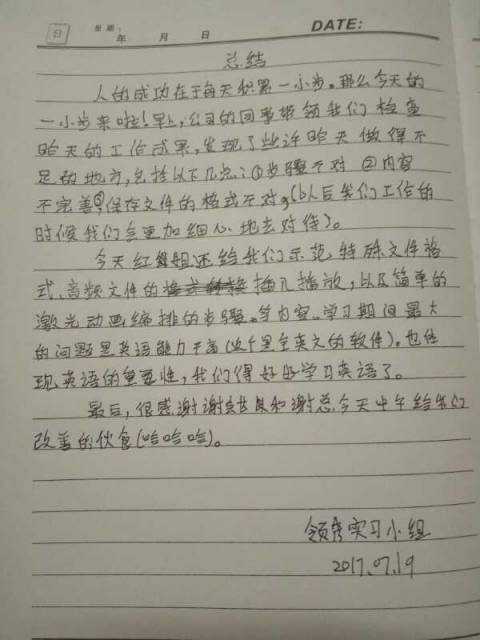 日
星期:
年 月 日 DATE:
总结
人的成功在于每天积累一小步。那么今天的
一小步来啦!早上,公司的同事带领我们检查
昨天的工作成果,发现了些许昨天做得不
足的地方,包括以下几点:①步骤不对 ②内容
不完善③保存文件的格式不对,(以后我们工作的
时候我们会更加细心地去对待)。
今天红姐还给我们示范特殊文件格
式、音频文件的插入播放,以及简单的
激光动画编排的步骤。等内容。学习期间最大
的问题是英语能力不高(这个是全英文的软件)。也体
现英语的重要性,我们得好好学习英语了。
最后,很感谢谢和谢总今天中午给我们
改善的伙食(哈哈哈)。
领秀实习小组
2017.07.19